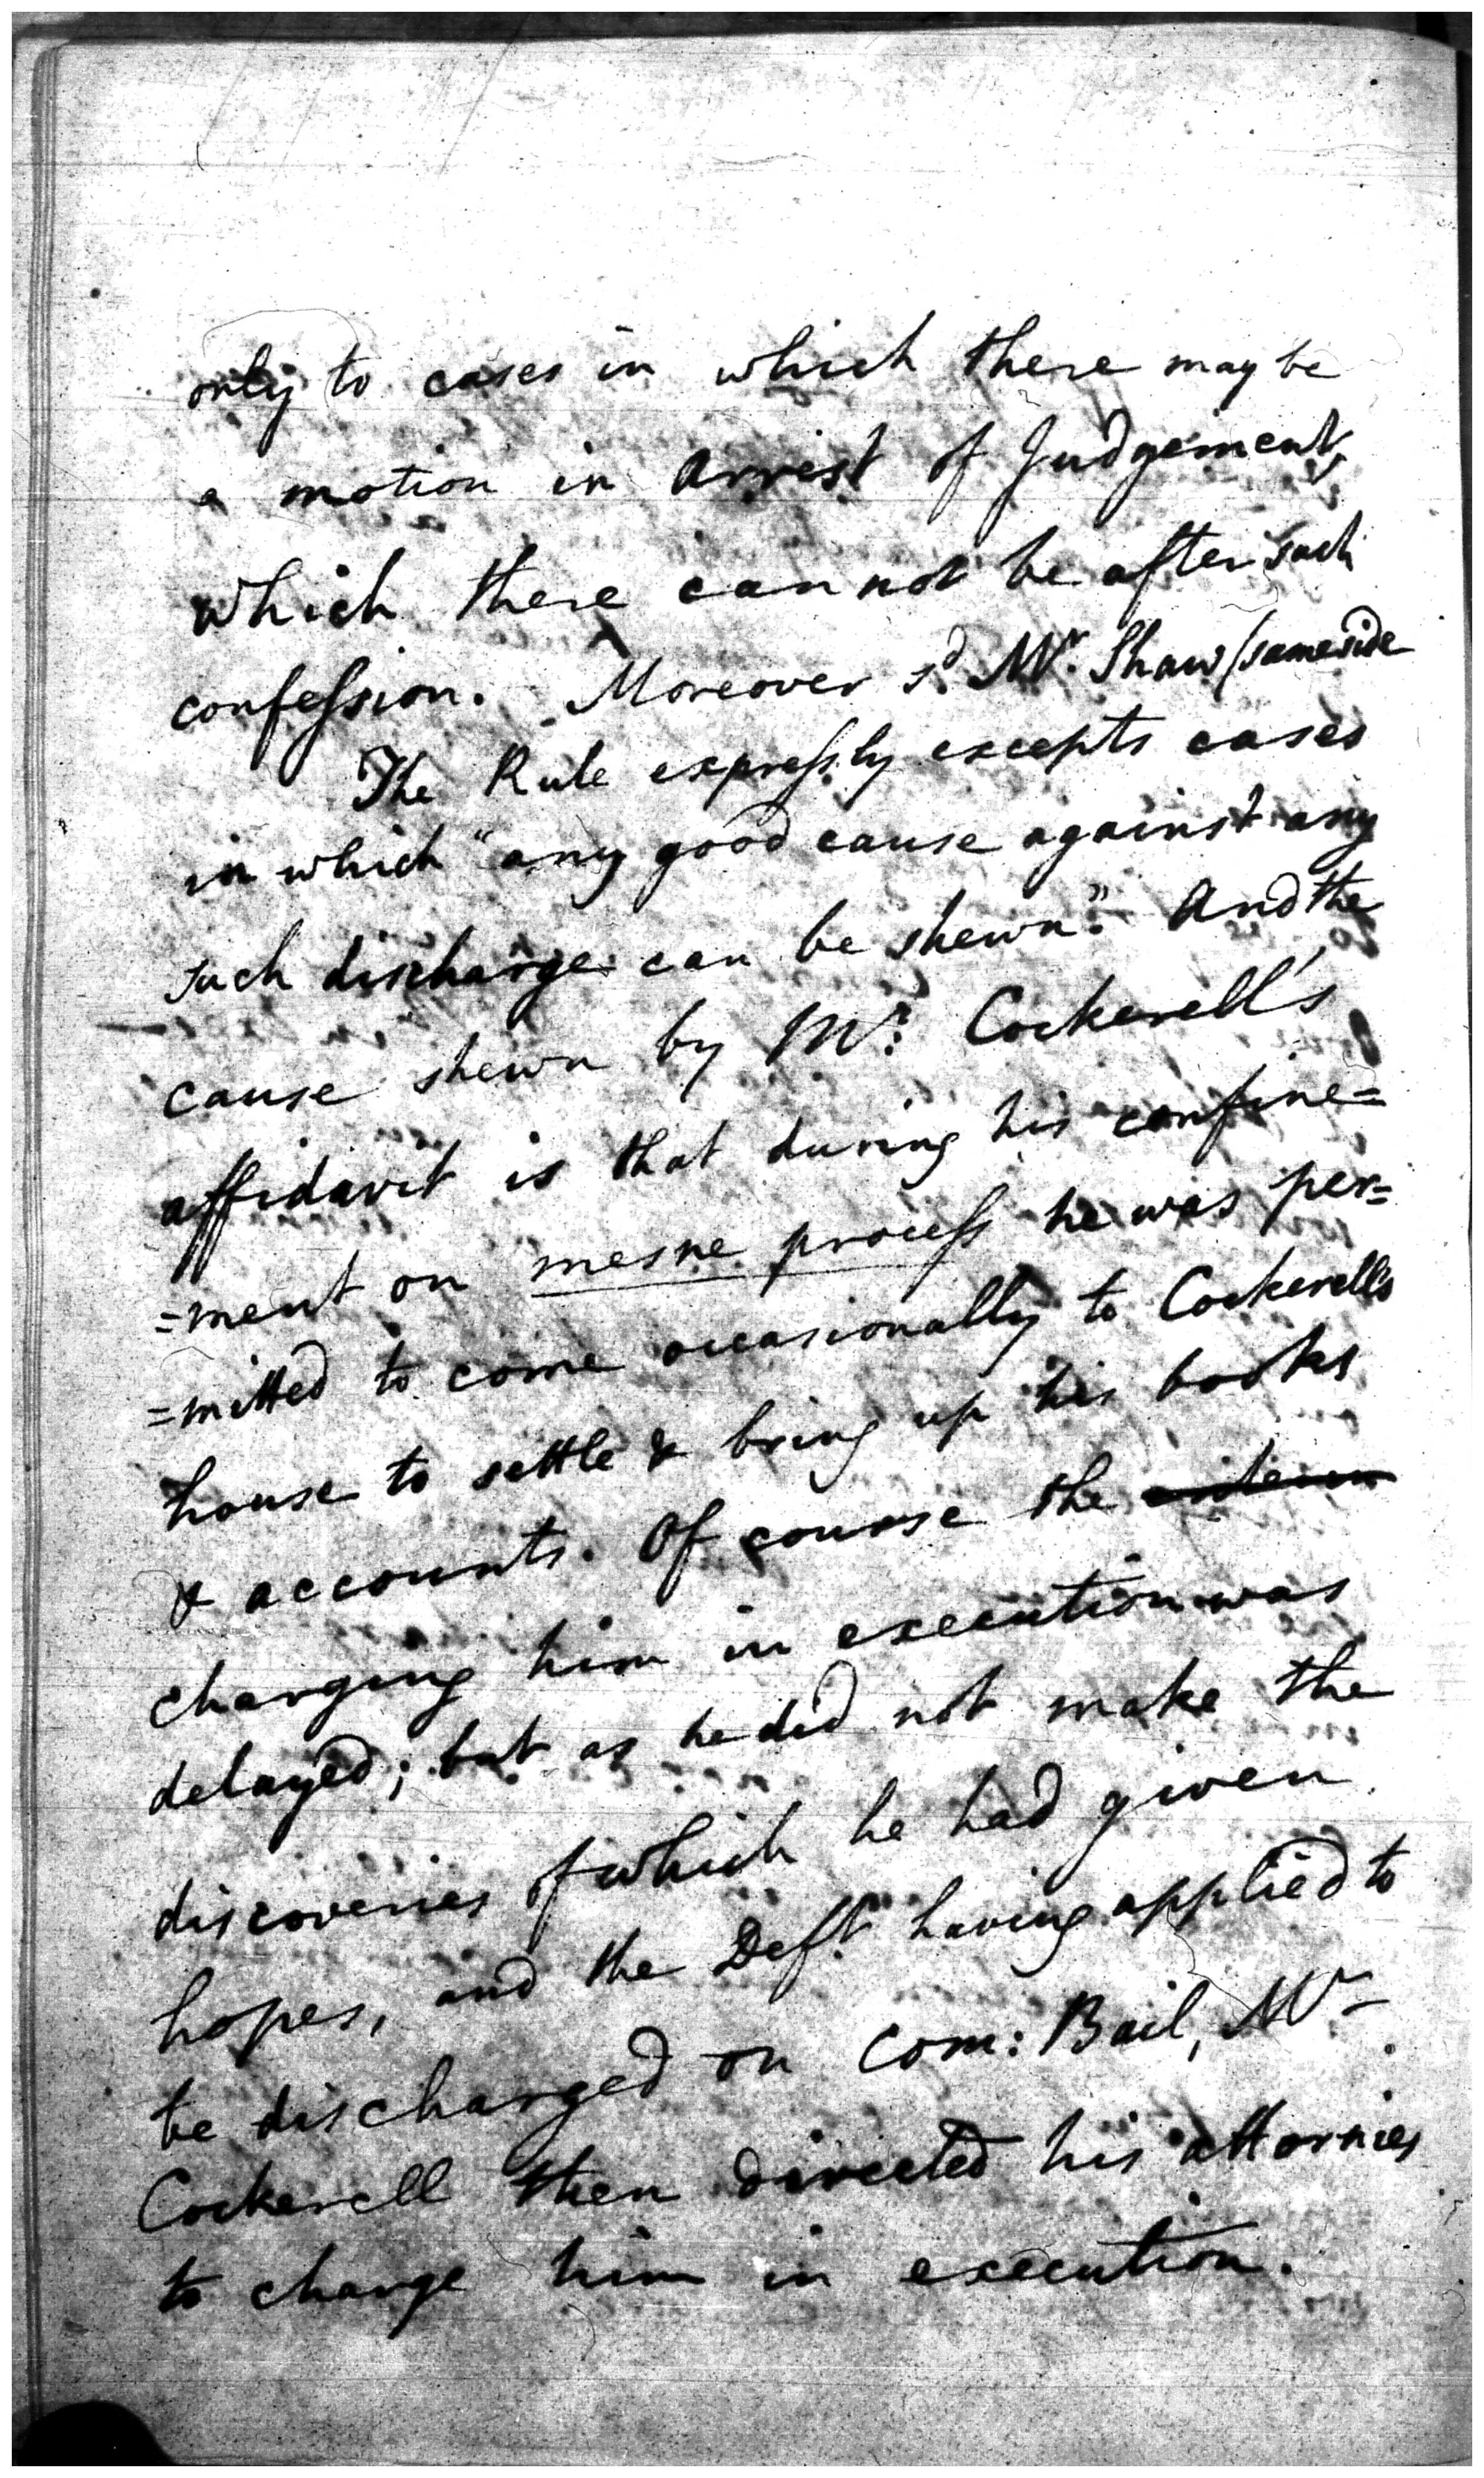 only to cases in which there may be
a motion in Arrest of Judgement,
which there cannot be after such
confeſsion. Moreover s.d Mr. Shaw (same side
The Rule expreſsly excepts cases
in which "any good cause against any
such discharge can be shewn." And the
cause shewn by Mr. Cockerell's
affidavit is that during his confine=
=ment on mesne proceſs he was per=
=mitted to come occasionally to Cockerell's
house to settle & bring up his books
& accounts. Of course the
charging him in execution was
delayed; but as he did not make the
discoveries of which he had given
hopes, and the Deft. having applied to
be discharged on Com: Bail, Mr
Cockerell then directed his attornies
to charge him in execution.